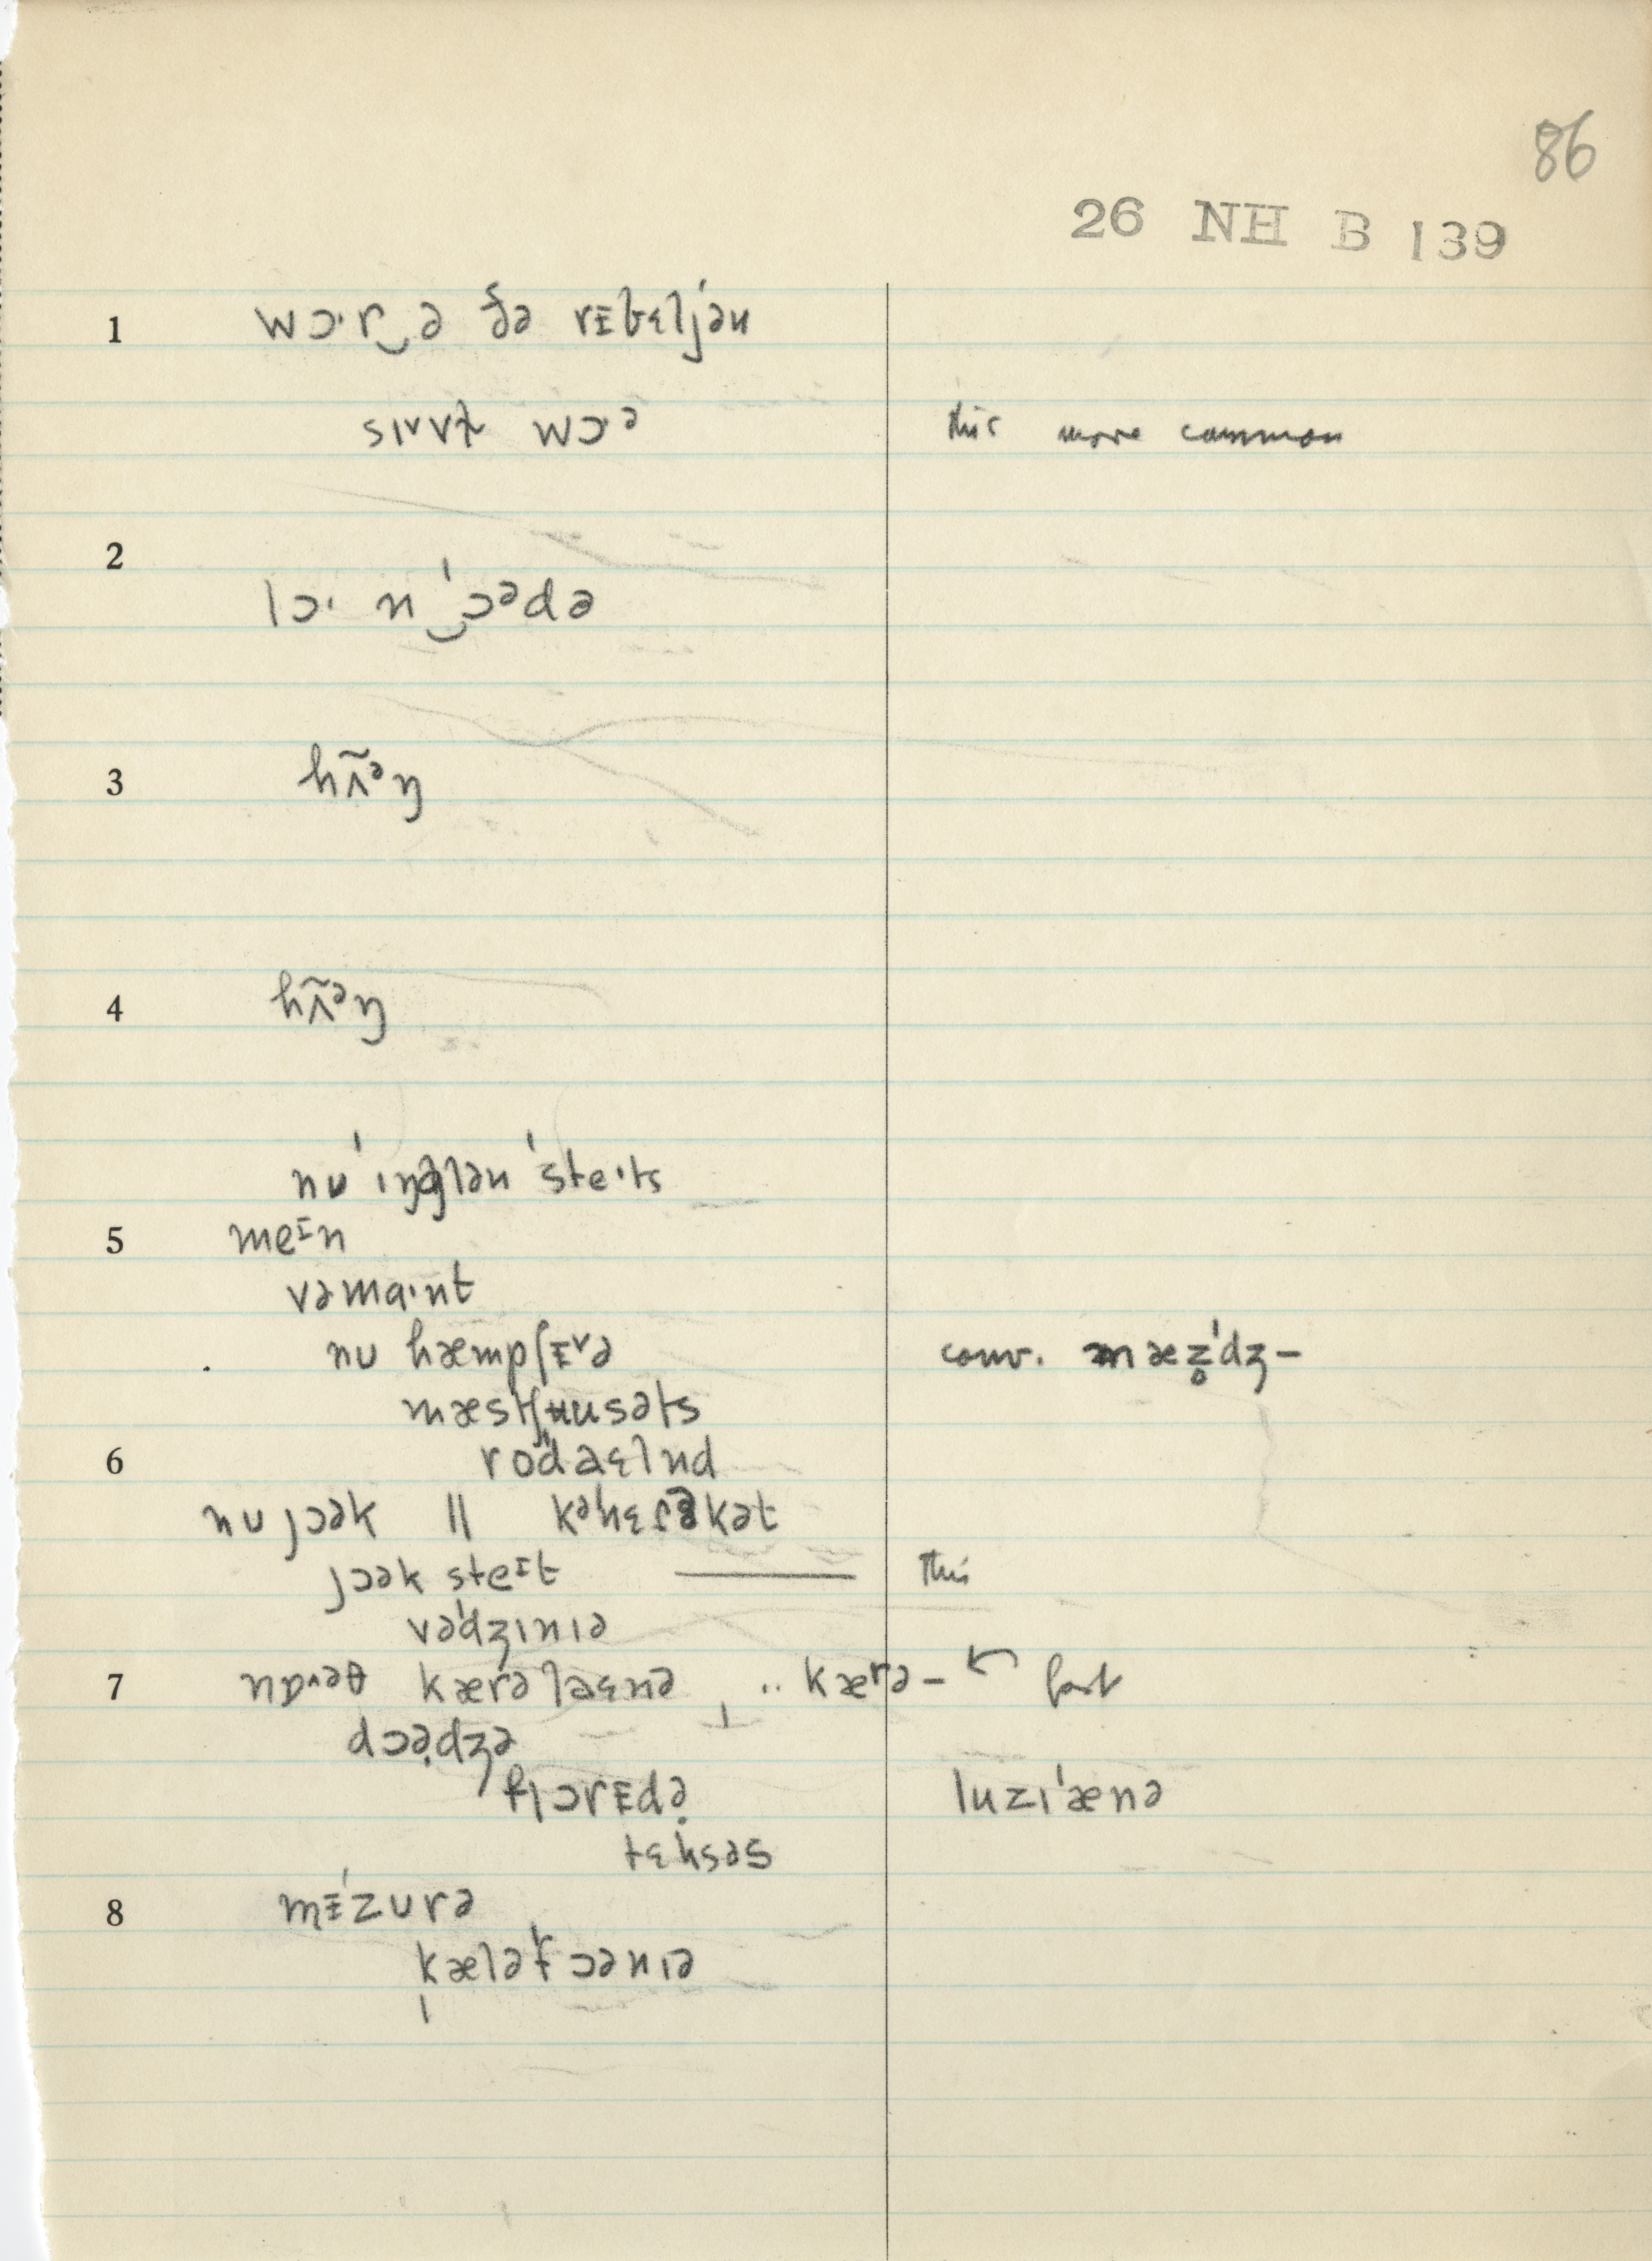 86
26 NH B 139
1 wɔ·r‿ə ðə rɪbɛljən
sɪvɪl wɔ·ə this more common
2
lɔ· n‿ˈɔədə
3 hʌ̃ᵊŋ
4 hʌ̃ᵊŋ
nuˈɪŋglənˈste·ts
5 meɪn
vəma·nt
nu hæmpʃɪvə conv. mæz̥ˈdʒ–
mæstʃusəts
6 rodaɛlnd
nu jɔək || kəhɛrəkət
jɔək steɪt this
vəˈdʒɪnɪə
7 nɒʌəθ kærəlaɛnə .. kærə– ← fast
dɔədʒə
flɔrɪdə luzɪˈænə
tɛksəs
8 mɪˈzurə
kæləfɔənɪə